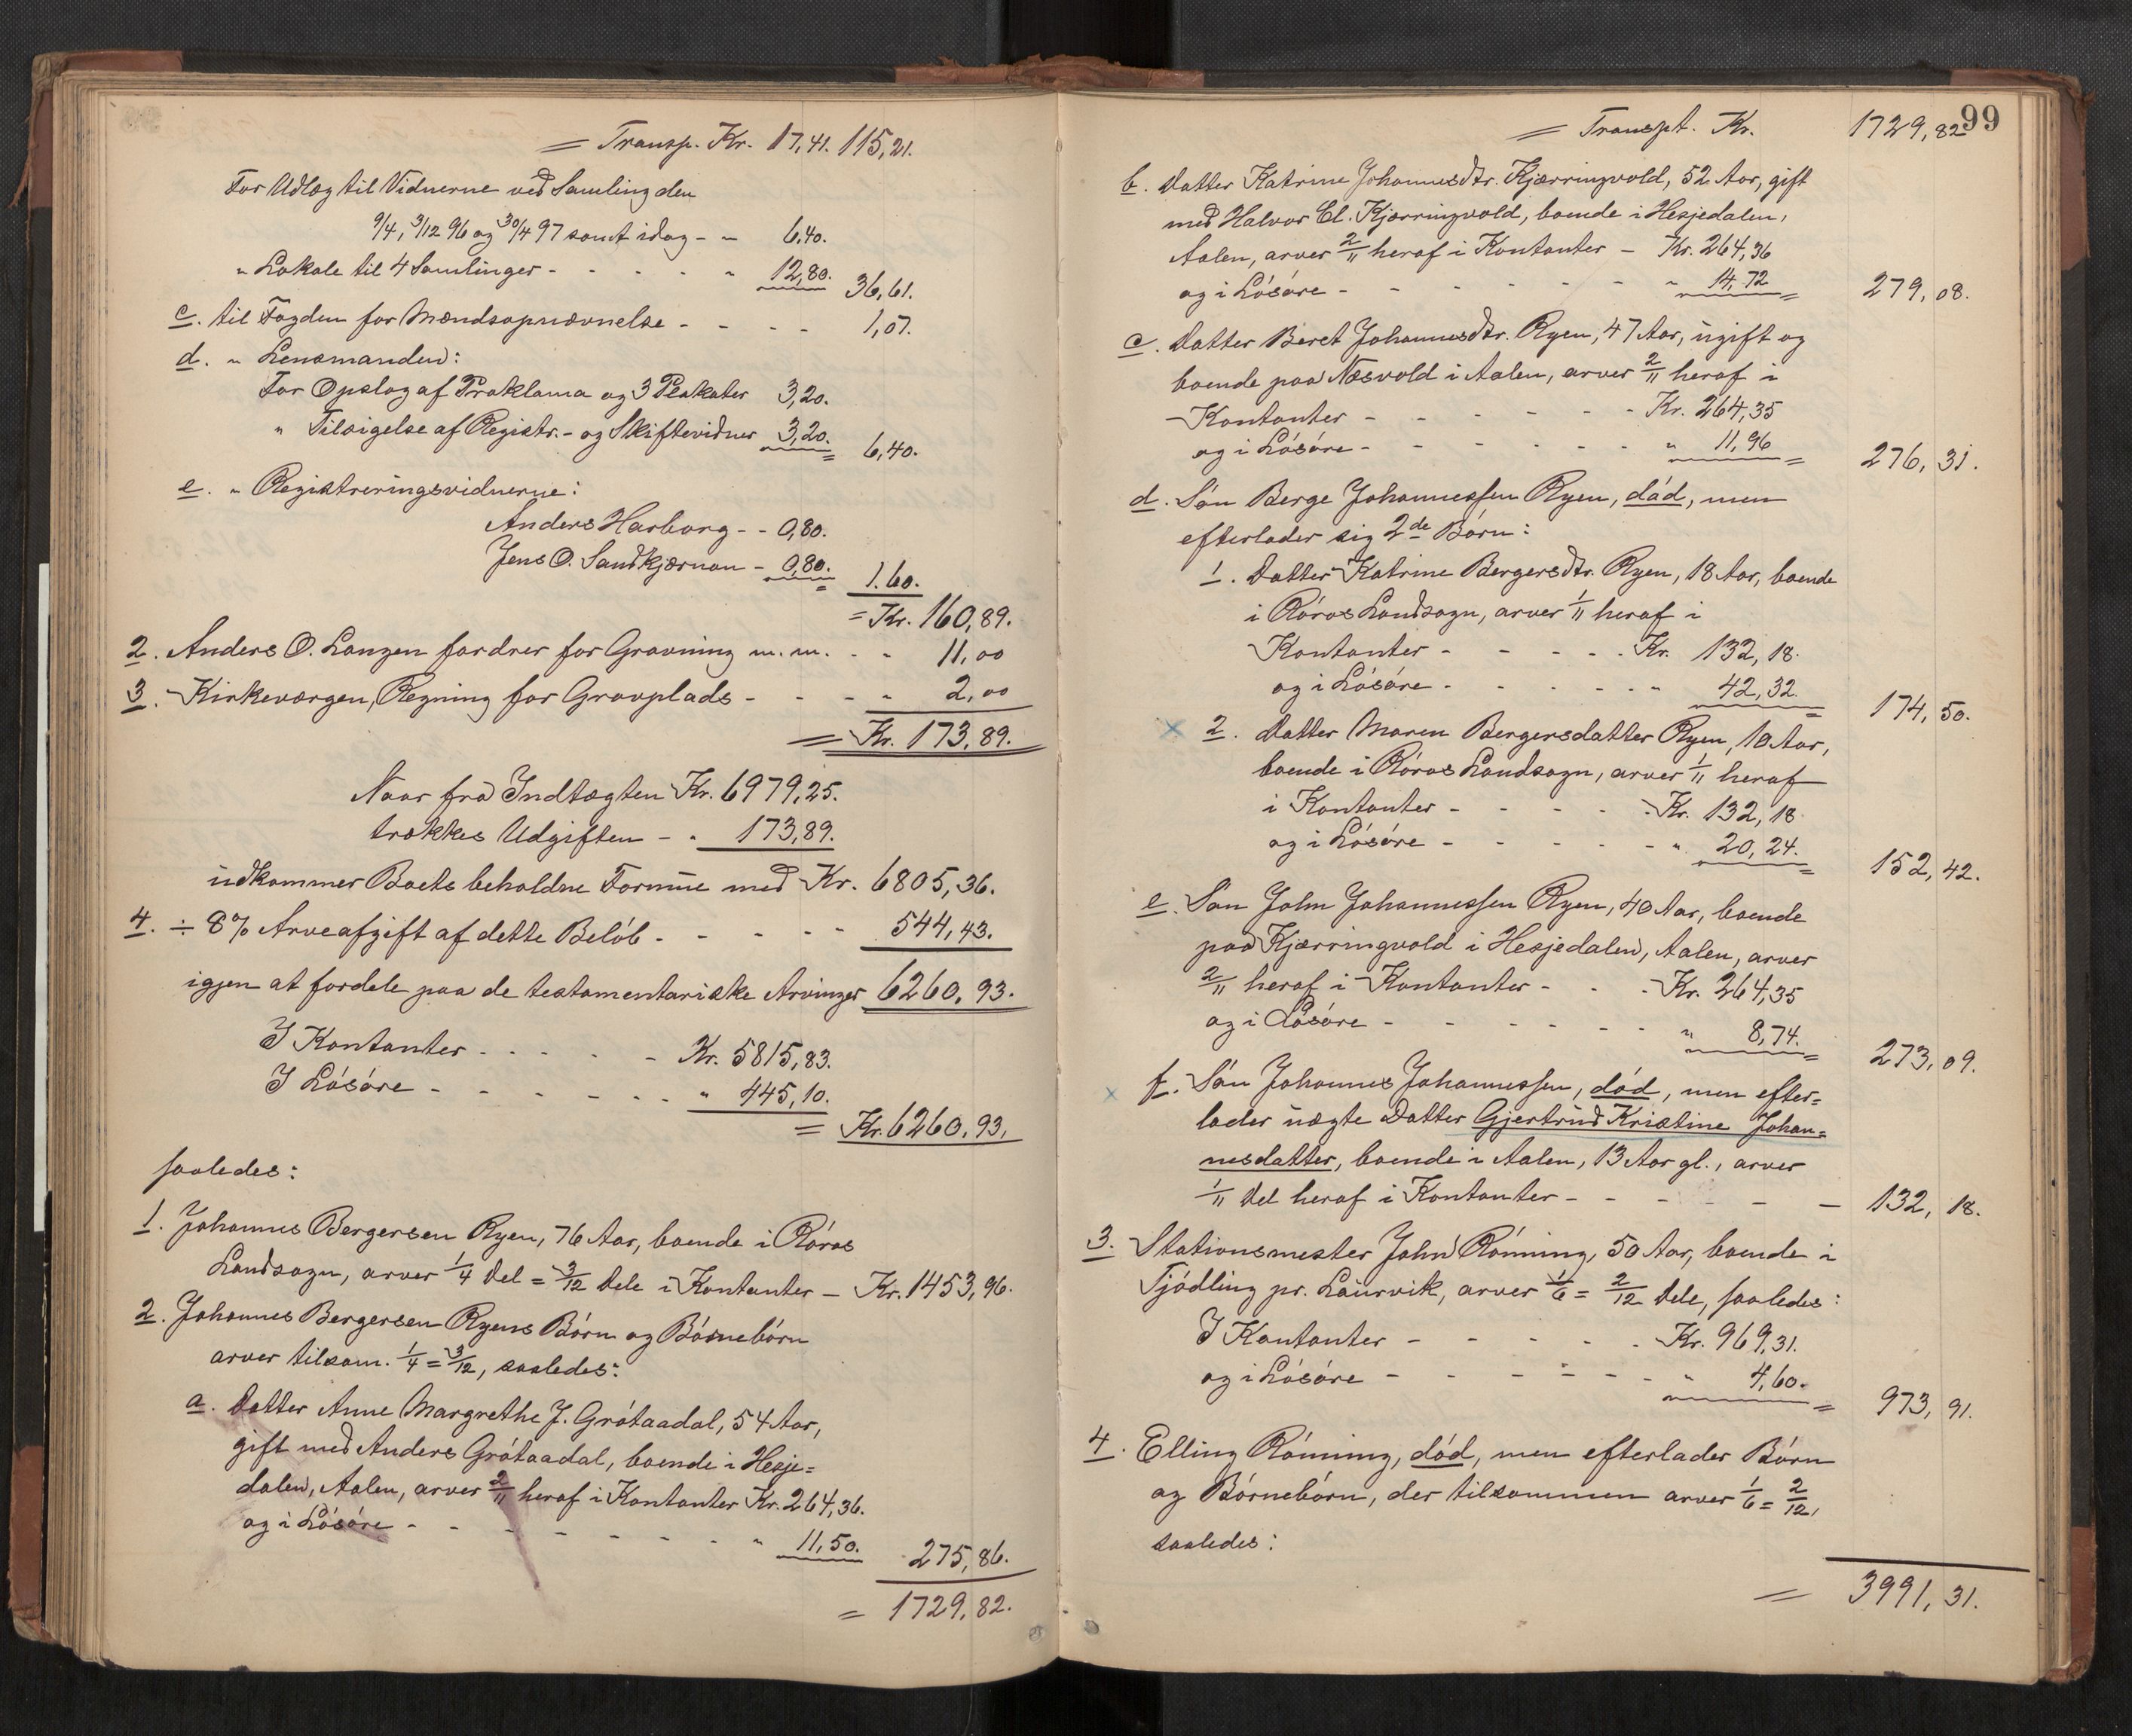 = Transp. Kr. 17,41. 115,21.
For Udlæg til Vidnerne ved Samling den
9/4, 3/12 96 og 30/4 97 samt idag - " 6,40.
" Lokale til 4 Samlinger - - - - " 12,80. 36,61.
c. til Fogden for Mændsopnævnelse - - - - 1,07.
d. " Lensmanden:
For Opslag af Proklama og 3 Plakater 3,20.
" Tilsigelse af Registr.- og Skiftevidner 3,20. 6,40.
e. " Registreringsvidnerne:
Anders Harborg - - 0,80.
Jens O. Sandkjærnan - 0,80. 1.60.
= Kr. 160,89.
2. Anders O. Langen fordrer for Gravning m.m. - - 11,00
3. Kirkeværgen, Regning for Gravplads - - - " 2,00
= Kr. 173,89.
Naar fra Indtægten Kr. 6979,25.
trækkes Udgiften - " 173,89.
udkommer Boets beholdne Formue med Kr. 6805,36.
4. ÷ 8% Arveafgift af dette Beløb - - - - - 544,43.
igjen at fordele paa de testamentariske Arvinger 6260,93.
I Kontanter - - - - - Kr. 5815,83.
I Løsøre - - - - - - " 445,10.
= Kr. 6260,93.
saaledes:
1. Johannes Bergersen Ryen, 76 Aar, boende i Røros
Landsogn, arver 1/4 Del = 3/12 Dele i Kontanter - Kr. 1453,96.
2. Johannes Bergersen Ryens Børn og Børnebørn
arver tilsam. 1/4 = 3/12, saaledes:
a. Datter Anne Margrethe J. Grøtaadal, 54 Aar,
gift med Anders Grøtaadal, boende i Hesje=
dalen, Aalen, arver 2/11 heraf i Kontanter Kr. 264,36.
og i Løsøre - - - - - - - - " 11,50. 275,86.
= 1729,82.
99
= Transpt. Kr. 1729,82
b. Datter Katrine Johannesdtr. Kjærringvold, 52 Aar, gift
med Halvor El. Kjærringvold, boende i Hesjedalen,
Aalen, arver 2/11 heraf i Kontanter - Kr. 264,36
og i Løsøre - - - - - - - " 14,72 = 279,08.
c. Datter Beret Johannesdtr. Ryen, 47 Aar, ugift og
boende paa Næsvold i Aalen, arver 2/11 heraf i
Kontanter - - - - - - - Kr. 264,35
og i Løsøre - - - - - - - " 11,96 = 276,31.
d. Søn Berge Johannessen Ryen, død, men
efterlader sig 2de Børn:
1. Datter Katrine Bergersdtr. Ryen, 18 Aar, boende
i Røros Landsogn, arver 1/11 heraf i
Kontanter - - - - - Kr. 132,18.
og i Løsøre - - - - - - " 42,32. = 174,50.
x 2. Datter Maren Bergersdatter Ryen, 10 Aar,
boende i Røros Landsogn, arver 1/11 heraf
i Kontanter - - - - - Kr. 132,18.
og i Løsøre - - - - - " 20,24. = 152,42.
e. Søn John Johannessen Ryen, 40 Aar, boende
paa Kjærringvold i Hesjedalen, Aalen, arver
2/11 heraf i Kontanter - - - Kr. 264,35
og i Løsøre - - - - - - " 8,74. = 273,09.
x f. Søn Johannes Johannessen, død, men efter=
lader uægte Datter Gjertrud Kristine Johan=
nesdatter, boende i Aalen, 13 Aar gl., arver
1/11 Del heraf i Kontanter - - - - - - 132,18.
3. Stationsmester John Rønning, 50 Aar, boende i
Tjødling pr. Laurvik, arver 1/6 = 2/12 Dele, saaledes:
I Kontanter - - - - - Kr. 969,31.
og i Løsøre - - - - - - " 4,60. = 973,91.
4. Elling Rønning, død, men efterlader Børn
og Børnebørn, der tilsammen arver 1/6 = 2/12,
saaledes:
= 3991,31.